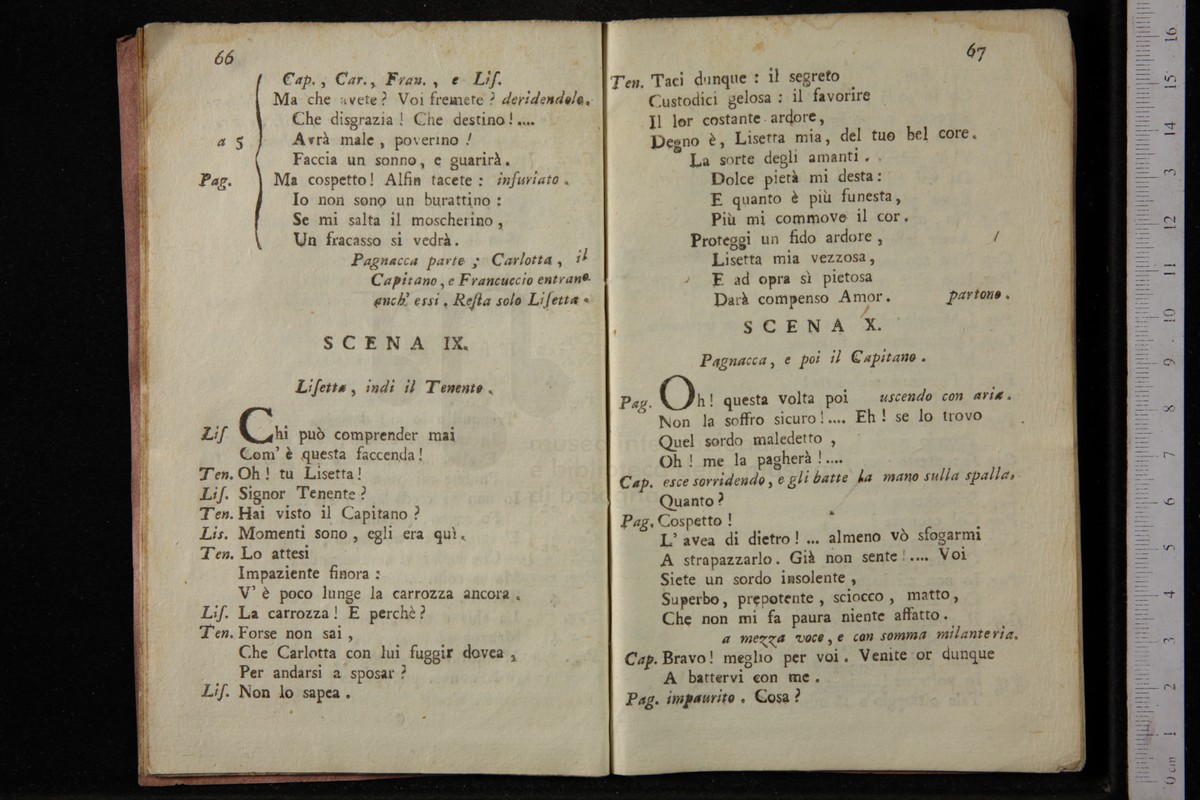 66
Cap., Car., Fran., e Liſ.
Ma che avete? Voi fremete? deridendolo.
Che disgrazia! Che destino!....
a 5 Avrà male, poverino!
Faccia un sonno, e guarirà.
Pag. Ma cospetto! Alfin tacete: infuriato.
Io non sono un burattino:
Se mi salta il moscherino,
Un fracasso si vedrà.
Pagnacca parte; Carlotta, il
Capitano, e Francuccio entrano
anch' essi. Reſta solo Liſetta.
SCENA IX.
Liſetta, indi il Tenente.
Liſ Chi può comprender mai
Com' è questa faccenda!
Ten. Oh! tu Lisetta!
Liſ. Signor Tenente?
Ten. Hai visto il Capitano?
Lis. Momenti sono, egli era quì.
Ten. Lo attesi
Impaziente finora:
V' è poco lunge la carrozza ancora.
Liſ. La carrozza! E perchè?
Ten. Forse non sai,
Che Carlotta con lui fuggir dovea,
Per andarsi a sposar?
Liſ. Non lo sapea.
67
Ten. Taci dunque: il segreto
Custodici gelosa: il favorire
Il lor costante ardore,
Degno è, Lisetta mia, del tuo bel core.
La sorte degli amanti.
Dolce pietà mi desta:
E quanto è più funesta,
Più mi commove il cor.
Proteggi un fido ardore,
Lisetta mia vezzosa,
E ad opra sì pietosa
Darà compenso Amor. partono.
SCENA X.
Pagnacca, e poi il Capitano.
Pag. Oh! questa volta poi uscendo con aria.
Non la soffro sicuro!.... Eh! se lo trovo
Quel sordo maledetto,
Oh! me la pagherà!....
Cap. esce sorridendo, e gli batte la mano sulla spalla.
Quanto?
Pag. Cospetto!
L' avea di dietro! ... almeno vò sfogarmi
A strapazzarlo. Già non sente!.... Voi
Siete un sordo insolente,
Superbo, prepotente, sciocco, matto,
Che non mi fa paura niente affatto.
a mezza voce, e con somma milanteria.
Cap. Bravo! meglio per voi. Venite or dunque
A battervi con me.
Pag. impaurito. Cosa?